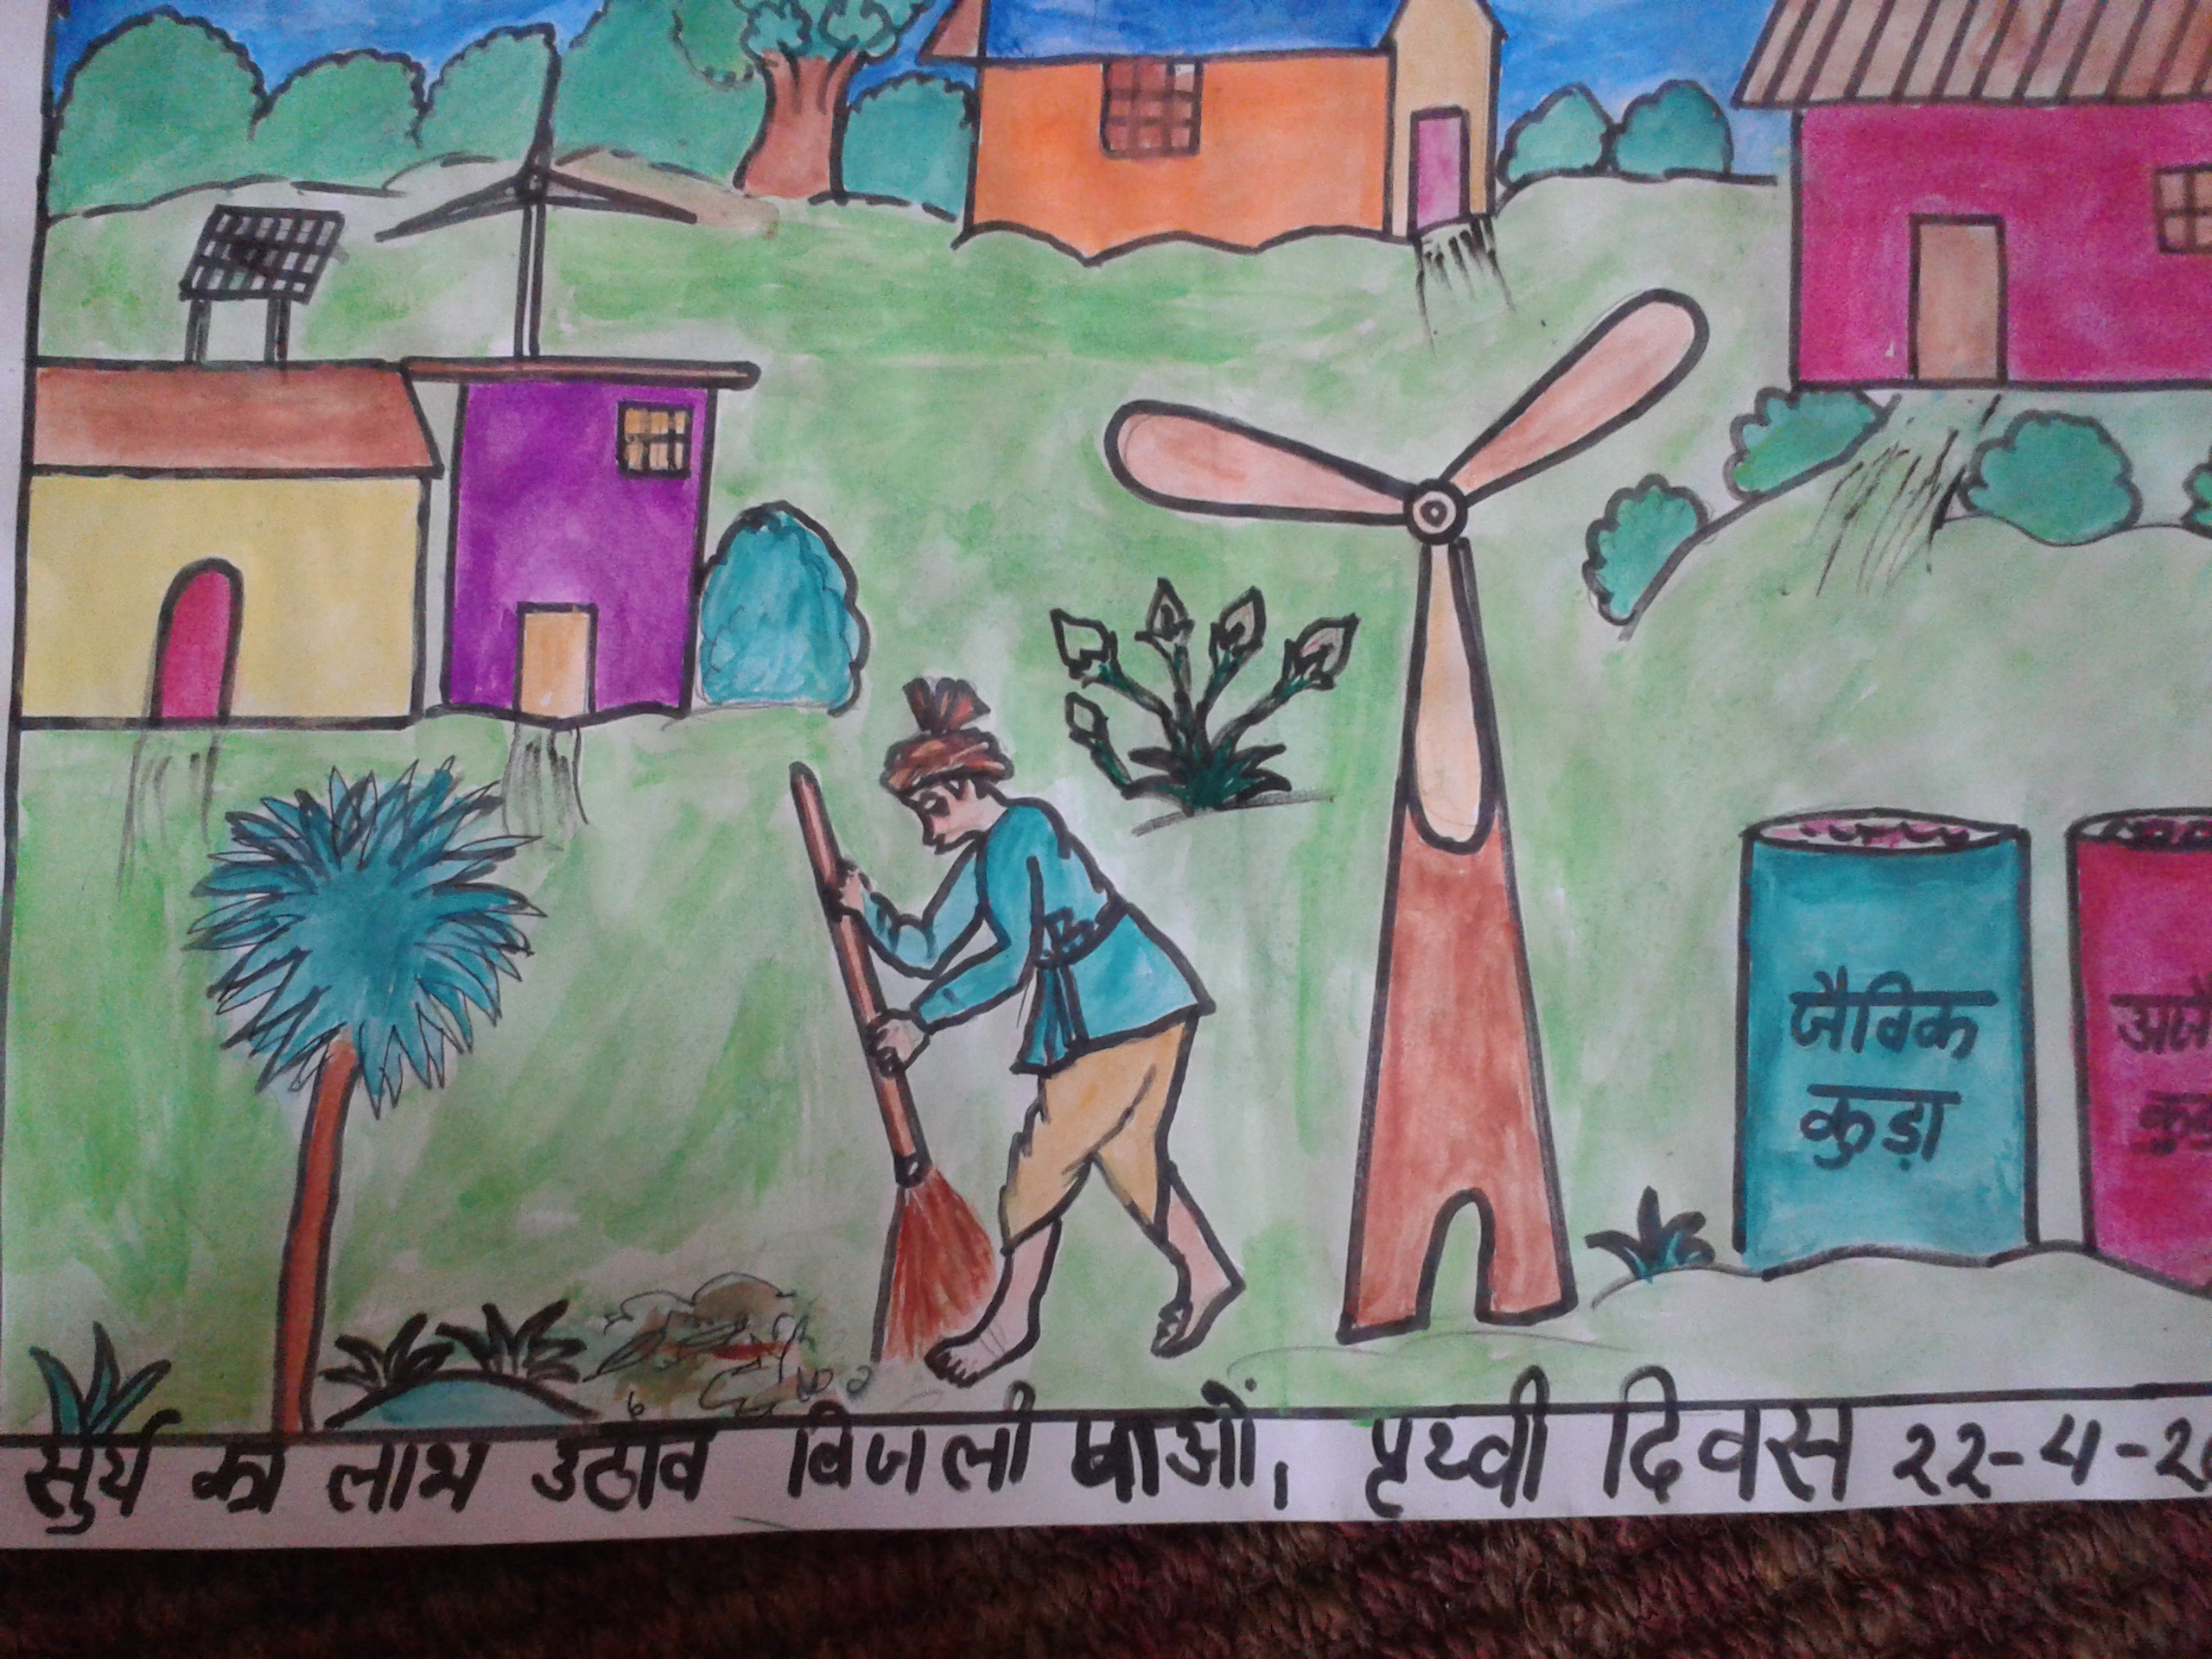 जैविक
कुड़ा
सुर्य का लाभ उठाव बिजली पाओं, पृथ्वी दिवस २२-५-२